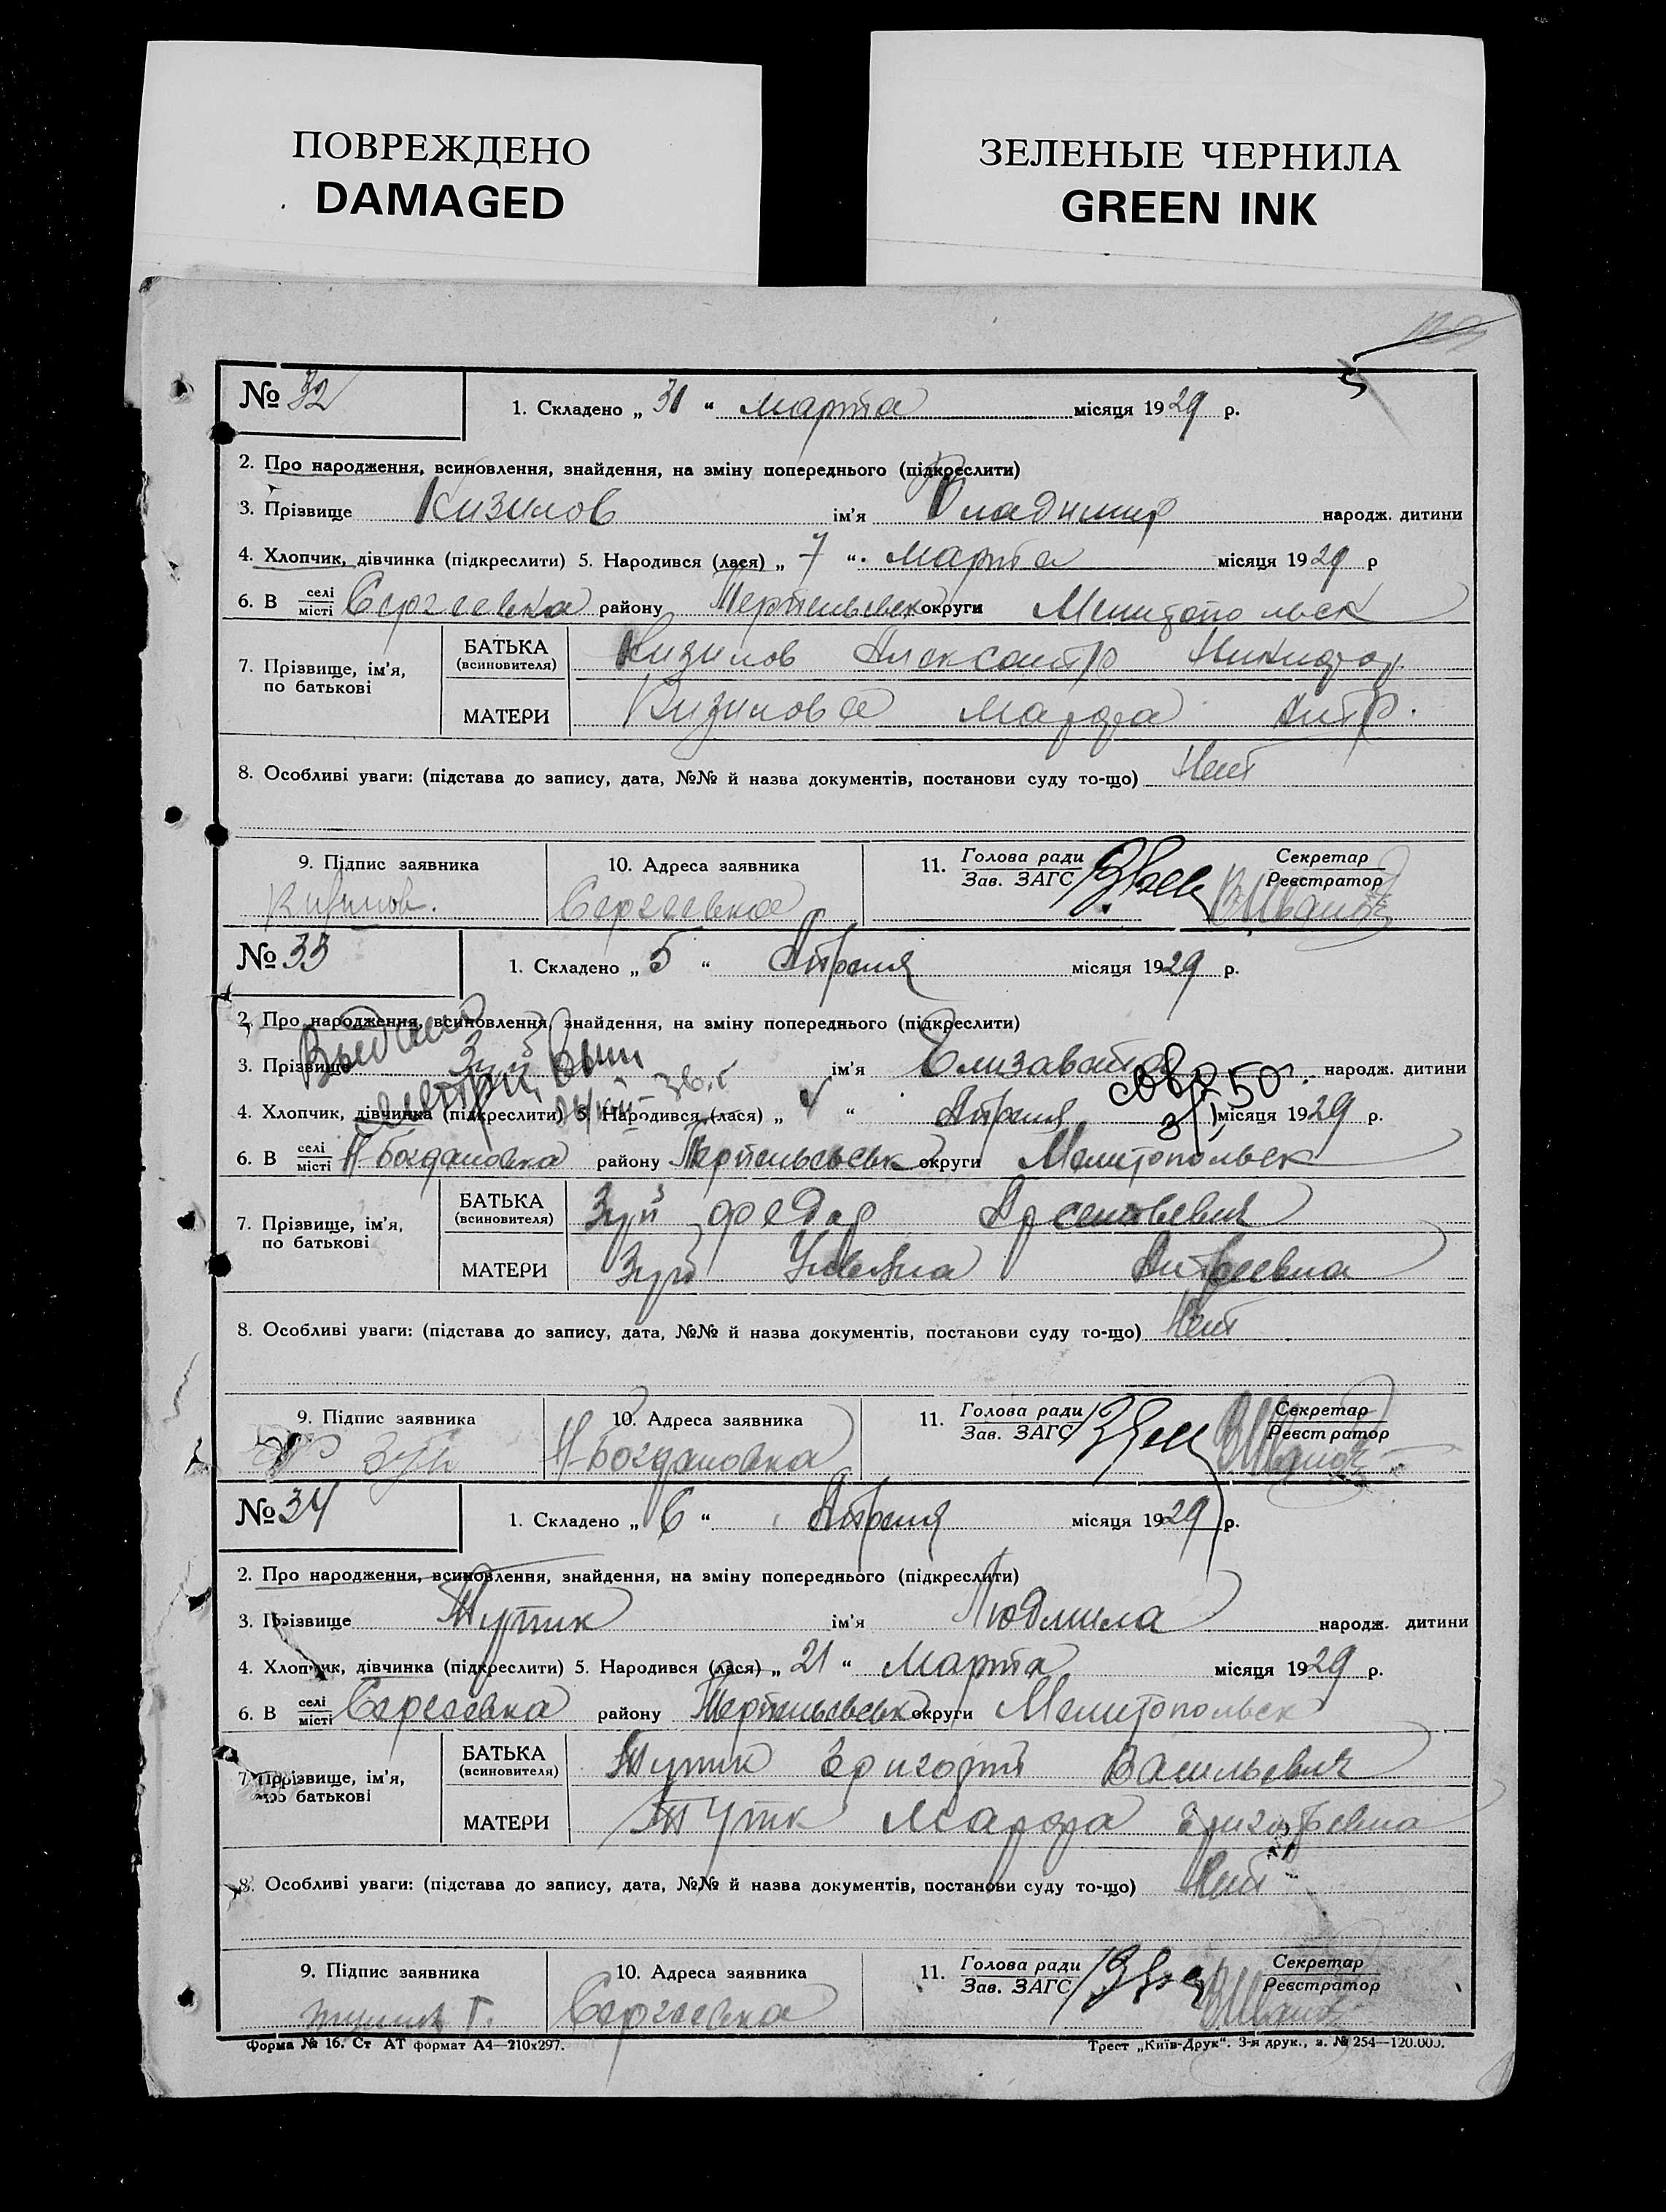 ПОВРЕЖДЕНО
DAMAGED
ЗЕЛЕНЫЕ ЧЕРНИЛА
GREEN INK
№ 32
1. Складено „ 31 “ марта місяця 1929 р.
2. Про народження, всиновлення, знайдення, на зміну попереднього (підкреслити)
3. Прізвище Кизилов ім'я Владимир народж. дитини
4. Хлопчик, дівчинка (підкреслити) 5. Народився (лася) „ 7 “ марта місяця 1929 р
6. В селі місті Сергеевка району округи Мелитопольск
7. Прізвище, ім'я, по батькові
БАТЬКА (всиновителя) Кизилов Александр Никифор
МАТЕРИ Кизилова Марфа Антр.
8. Особливі уваги: (підстава до запису, дата, №№ й назва документів, постанови суду то-що) Нет
9. Підпис заявника
Кизилов.
10. Адреса заявника
Сергеевка
11. Голова ради Зав. ЗАГС
Секретар Реєстратор
№ 33
1. Складено „ 5 “ Апреля місяця 1929 р.
2. Про народження, всиновлення, знайдення, на зміну попереднього (підкреслити)
Выдано
3. Прізвище Зуй ім'я Елизавета народж. дитини
4. Хлопчик, дівчинка (підкреслити) 5. Народився (лася) „ “ Апреля місяця 1929 р.
6. В селі місті Н-Богдановка району округи Мелитопольск
7. Прізвище, ім'я, по батькові
БАТЬКА (всиновителя) Зуй Федор Арсентьевич
МАТЕРИ Зуй Улеяна Антреевна
8. Особливі уваги: (підстава до запису, дата, №№ й назва документів, постанови суду то-що) Нет
9. Підпис заявника
Зуй
10. Адреса заявника
Н-Богдановка
11. Голова ради Зав. ЗАГС
Секретар Реєстратор
№ 34
1. Складено „ 6 “ Апреля місяця 1929 р.
2. Про народження, всиновлення, знайдення, на зміну попереднього (підкреслити)
3. Прізвище ім'я Людмила народж. дитини
4. Хлопчик, дівчинка (підкреслити) 5. Народився (лася) „ 21 “ Марта місяця 1929 р.
6. В селі місті Сергеевка району округи Мелитопольск
7. Прізвище, ім'я, по батькові
БАТЬКА (всиновителя) Григорий Васильевич
МАТЕРИ Марфа Григорьевна
8. Особливі уваги: (підстава до запису, дата, №№ й назва документів, постанови суду то-що) Нет
9. Підпис заявника
10. Адреса заявника
Сергеевка
11. Голова ради Зав. ЗАГС
Секретар Реєстратор
Форма № 16. Ст АТ формат А4—210х297.
Трест „Київ-Друк“. 3-я друк., з. № 254—120.000.